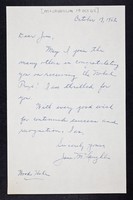 October 18, 1962
Dear Jim,
May I join the
many others in congratulating
you in receiving the Nobel
Prize. I am thrilled for
you.
With every good wish
for continued success and
recognition, I am,
Sincerely yours